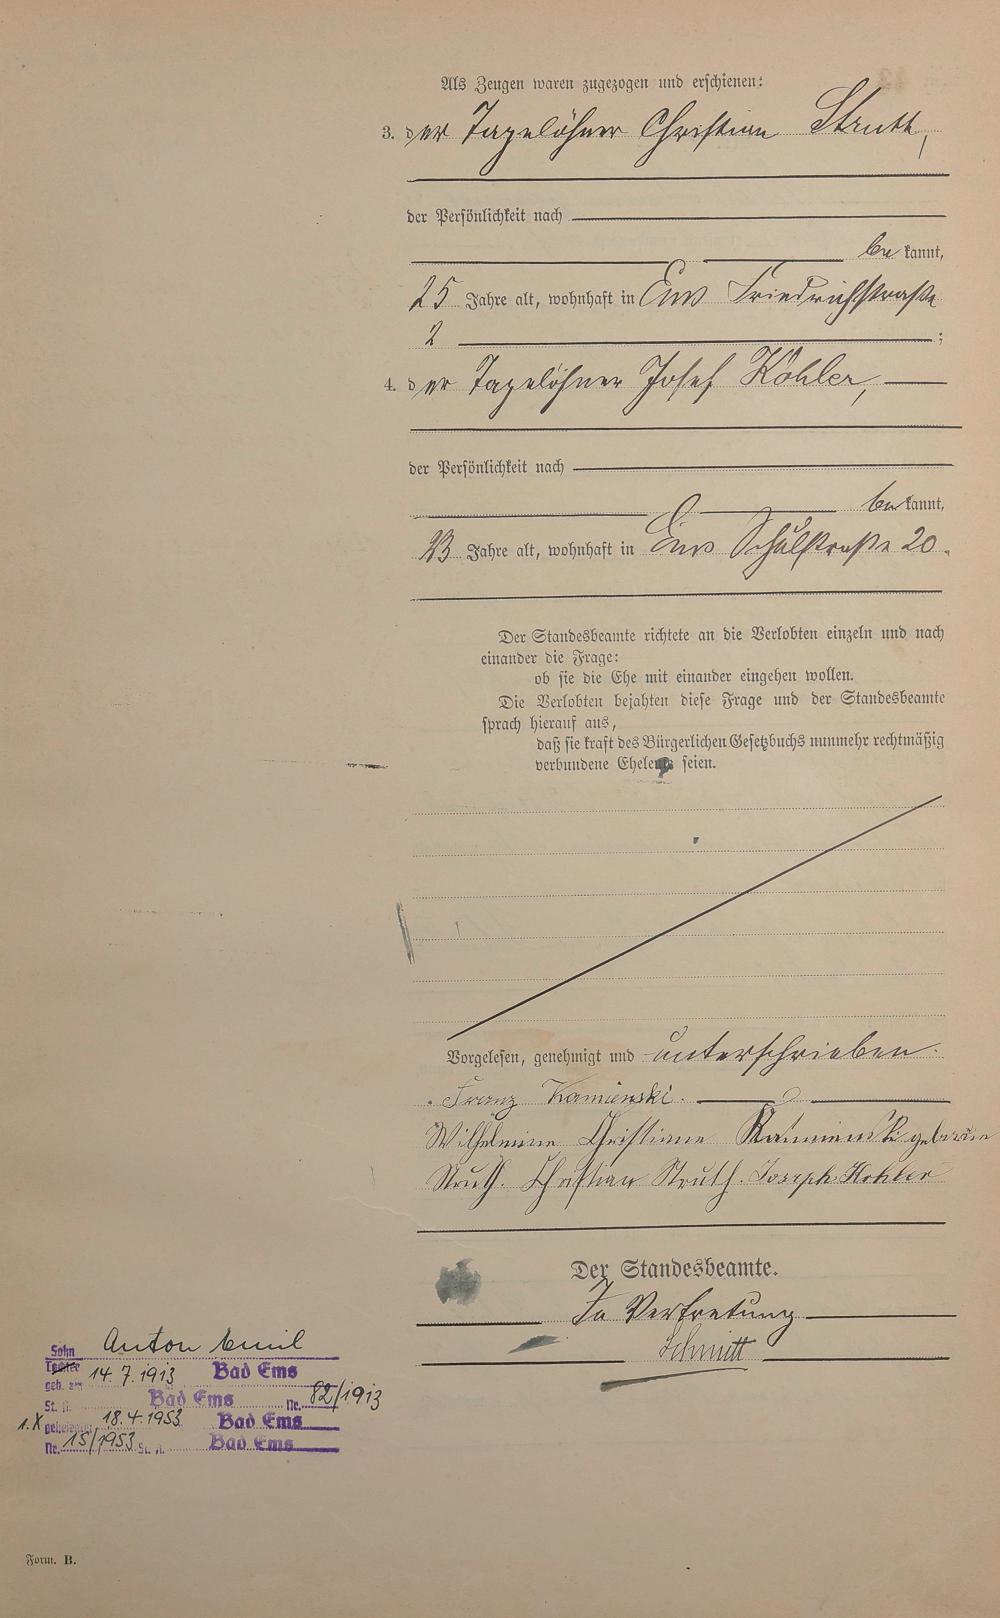 Als Zeugen waren zugezogen und erschienen:
3. der Tagelöhner Christian Struth,
der Persönlichkeit nach
bekannt,
25 Jahre alt, wohnhaft in Ems Friedrichstraße
2 ;
4. der Tagelöhner Josef Köhler,
der Persönlichkeit nach
bekannt,
23 Jahre alt, wohnhaft in Ems Schulstraße 20.
Der Standesbeamte richtete an die Verlobten einzeln und nach
einander die Frage:
ob sie die Ehe mit einander eingehen wollen.
Die Verlobten bejahten diese Frage und der Standesbeamte
sprach hierauf aus,
daß sie kraft des Bürgerlichen Gesetzbuchs nunmehr rechtmäßig
verbundene Eheleute seien.
Vorgelesen, genehmigt und unterschrieben.
Franz Kamienski.
Wilhelmine Christiane Kamienski geborene
Struth. Christian Struth. Joseph Kohler
Der Standesbeamte.
In Vertretung
Schmitt
Sohn Anton Emil
Tochter
geb. am 14.7.1913 Bad Ems
St. A. Bad Ems Nr. 82/1913
1.X geheiratet 18.4.1953 Bad Ems
Nr. 15/1953 St. A. Bad Ems
Form. B.